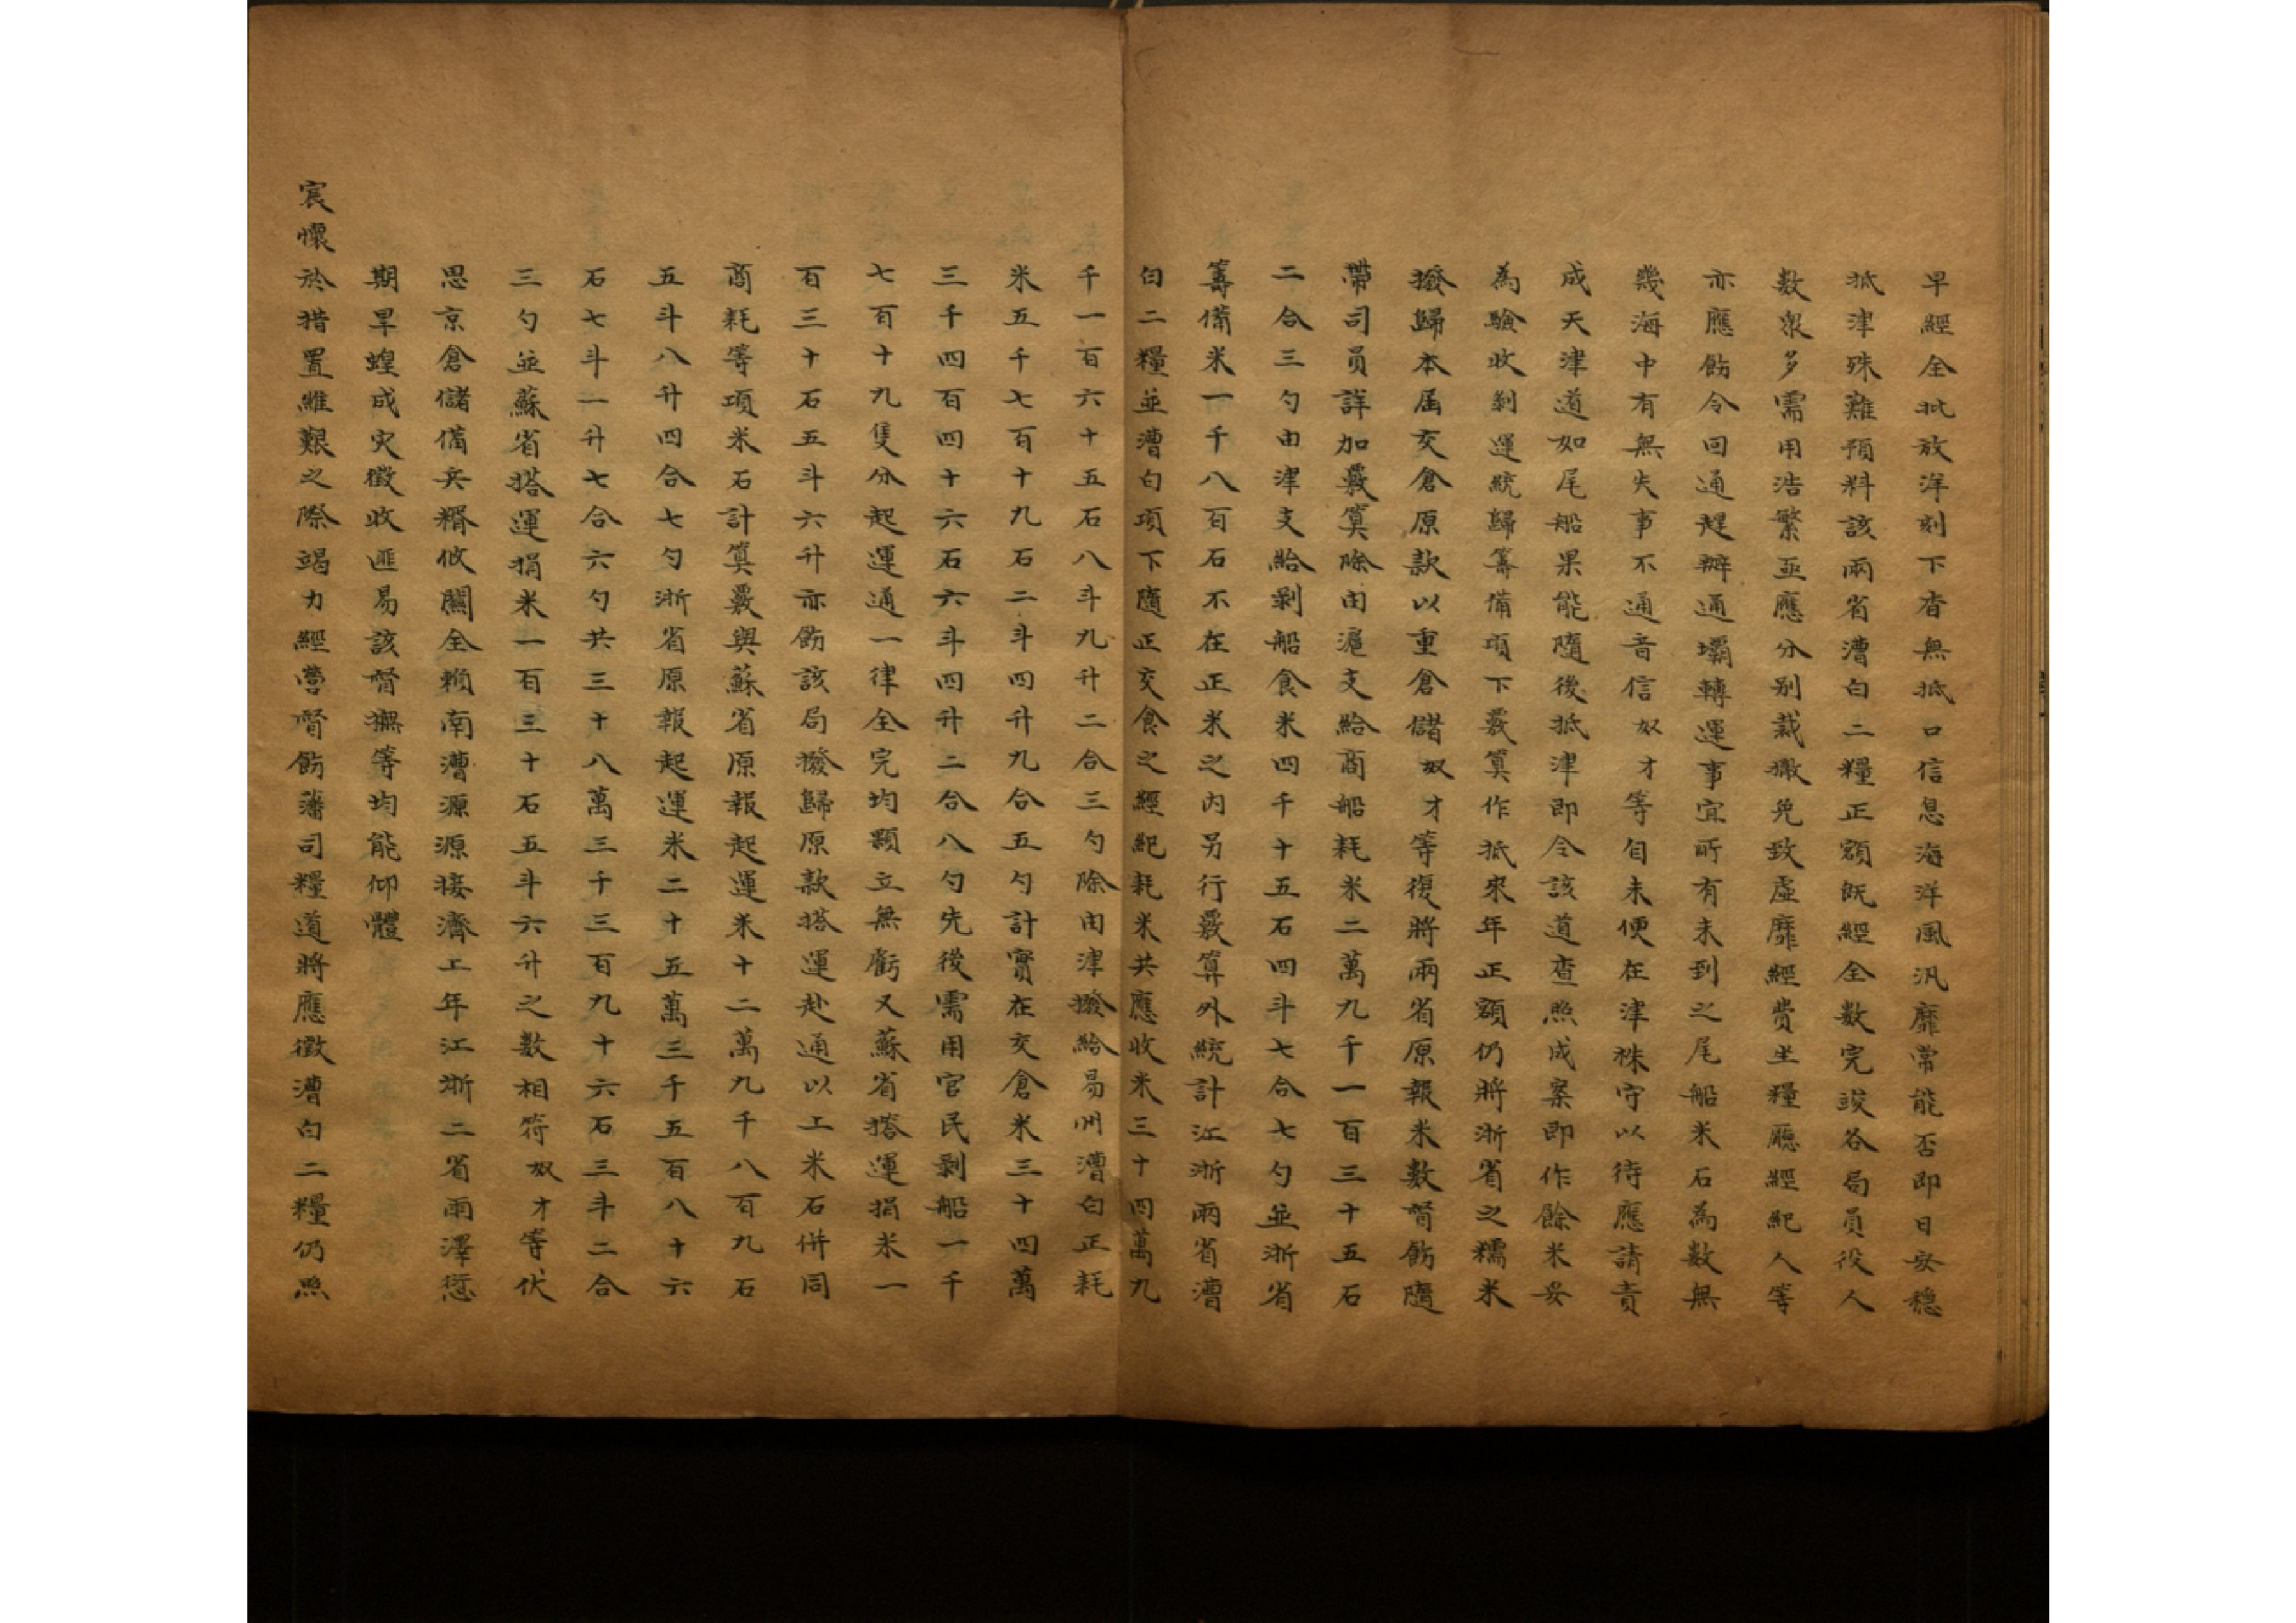 早經全批放洋刻下杳無抵口信息海洋風汛靡常能否即日安穩
抵津殊難預料該兩省漕白二糧正額既經全數完竣各局員役人
數衆多需用浩繁亟應分別裁撤免致虛靡經費坐糧廳經紀人等
亦應飭令回通趕辦通壩轉運事宜所有未到之尾船米石為數無
幾海中有無失事不通音信奴才等自未便在津株守以待應請責
成天津道如尾船果能隨後抵津即令該道查照成案即作餘米妥
為驗收剝運統歸籌備項下覈算作抵來年正額仍將浙省之糯米
撥歸本届交倉原款以重倉儲奴才等復將兩省原報米數督飭隨
帶司員詳加覈算除由滬支給商船耗米二萬九千一百三十五石
二合三勺由津支給剝船食米四千十五石四斗七合七勺並浙省
籌備米一千八百石不在正米之内另行覈算外統計江浙兩省漕
白二糧並漕白項下隨正交食之經紀耗米共應收米三十四萬九
千一百六十五石八斗九升二合三勺除由津撥給易州漕白正耗
米五千七百十九石二斗四升九合五勺計實在交倉米三十四萬
三千四百四十六石六斗四升二合八勺先後需用官民剝船一千
七百十九隻分起運通一律全完均顆立無虧又蘇省搭運捐米一
百三十石五斗六升亦飭該局撥歸原款搭運赴通以上米石併同
商耗等項米石計算覈與蘇省原報起運米十二萬九千八百九石
五斗八升四合七勺浙省原報起運米二十五萬三千五百八十六
石七斗一升七合六勺共三十八萬三千三百九十六石三斗二合
三勺並蘇省搭運捐米一百三十石五斗六升之數相符奴才等伏
思京倉儲備兵糈攸關全賴南漕源源接濟上年江浙二省雨澤愆
期旱蝗成灾徵收匪易該督撫等均能仰體
宸懷於措置維艱之際竭力經營督飭藩司糧道將應徵漕白二糧仍照